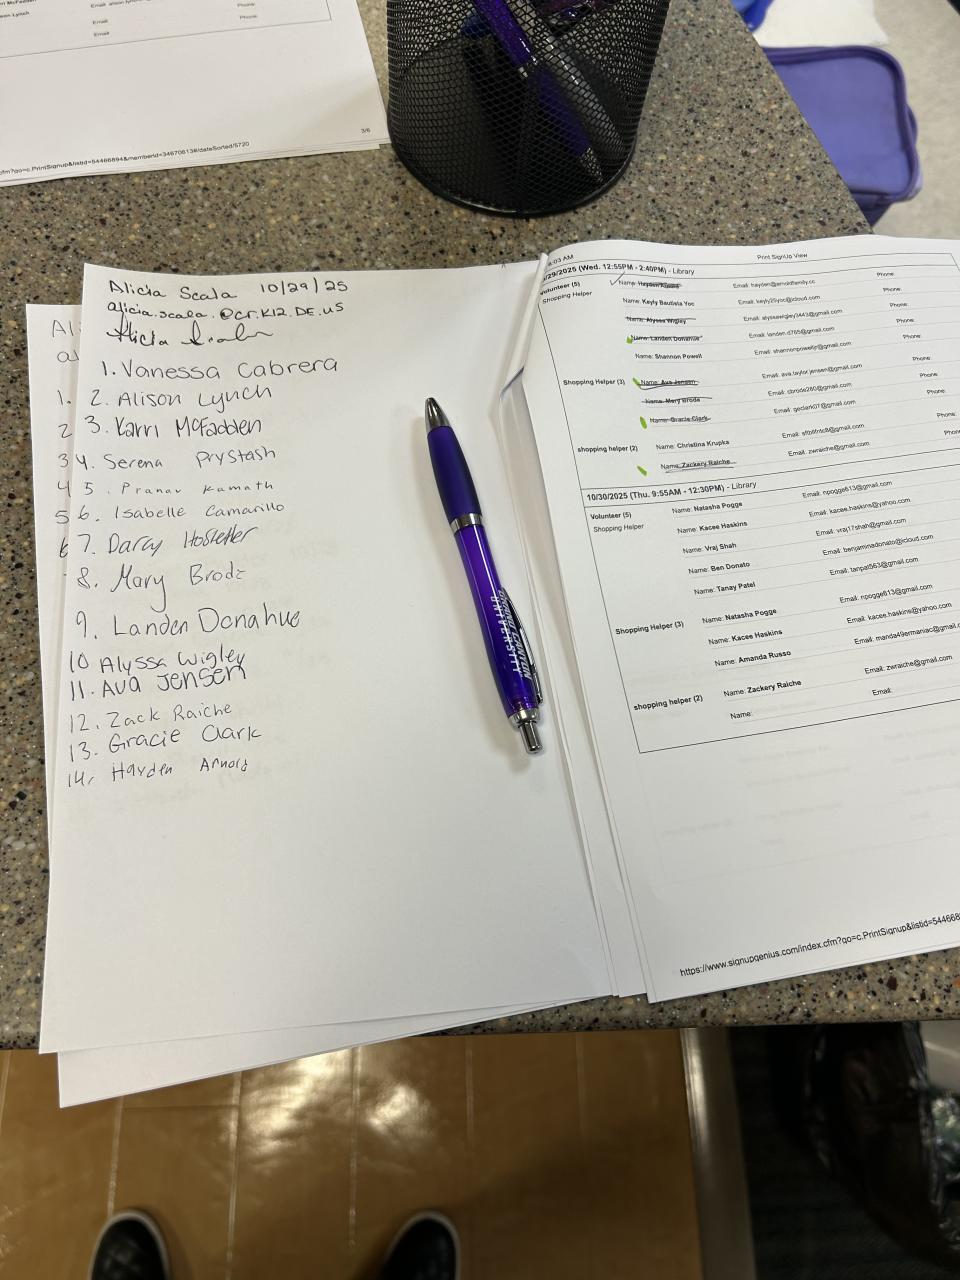 Email:
Phone:
Email:
Phone:
Email:
3/6
cfm?go=c.PrintSignup&listid=54466894&memberid=34670613#/dateSorted/5720
Alicia Scala 10/29/25
alicia.scala.@cr.K12.DE.US
Alicia Scala
1. Vanessa Cabrera
2. Alison Lynch
3. Karri McFadden
4. Serena Prystash
5. Pranav Kamath
6. Isabelle Camarillo
7. Darcy Hostetter
8. Mary Brode
9. Landen Donahue
10 Alyssa Wigley
11. Ava Jensen
12. Zack Raiche
13. Gracie Clark
14. Hayden Arnold
1.
2
3
4
5
6
UNIVERSITY
:03 AM Print SignUp View
/29/2025 (Wed. 12:55PM - 2:40PM) - Library
Volunteer (5) Name: Email: hayden@arnoldfamily.cc Phone:
Shopping Helper Name: Keyly Bautista Yoc Email: keyly25yoc@icloud.com Phone:
Name: Alyssa Wigley Email: alyssawigley3443@gmail.com Phone:
Name: Landen Donahue Email: landen.d765@gmail.com Phone:
Name: Shannon Powell Email: shannonpowelljr@gmail.com Phone:
Shopping Helper (3) Name: Ava Jensen Email: ava.taylor.jensen@gmail.com Phone:
Name: Mary Brode Email: cbrode280@gmail.com Phone:
Name: Gracie Clark Email: geclark07@gmail.com Phone:
shopping helper (2) Name: Christina Krupka Email: Phone:
Name: Zackery Raiche Email: zwraiche@gmail.com Phone:
10/30/2025 (Thu. 9:55AM - 12:30PM) - Library
Volunteer (5) Name: Natasha Pogge Email: npogge613@gmail.com
Shopping Helper Name: Kacee Haskins Email: kacee.haskins@yahoo.com
Name: Vraj Shah Email: vraj17shah@gmail.com
Name: Ben Donato Email: benjaminadonato@icloud.com
Name: Tanay Patel Email: tanpat563@gmail.com
Shopping Helper (3) Name: Natasha Pogge Email: npogge613@gmail.com
Name: Kacee Haskins Email: kacee.haskins@yahoo.com
Name: Amanda Russo Email: manda49ermaniac@gmail.com
shopping helper (2) Name: Zackery Raiche Email: zwraiche@gmail.com
Name: Email:
https://www.signupgenius.com/index.cfm?go=c.PrintSignup&listid=544668